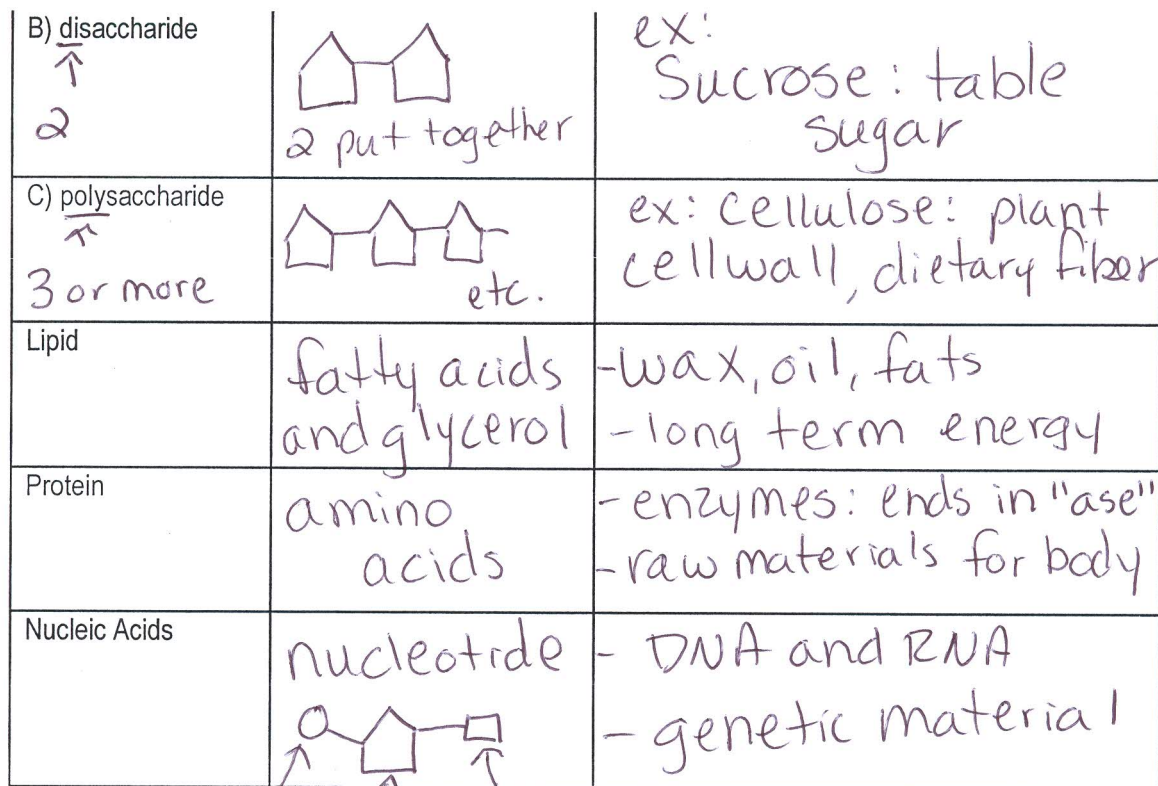 B) disaccharide
2
2 put together
ex:
Sucrose: table
sugar
C) polysaccharide
3 or more
etc.
ex: cellulose: plant
cellwall, dietary fiber
Lipid
fatty acids
and glycerol
-wax, oil, fats
-long term energy
Protein
amino
acids
- enzymes: ends in "ase"
-raw materials for body
Nucleic Acids
nucleotide
- DNA and RNA
- genetic material